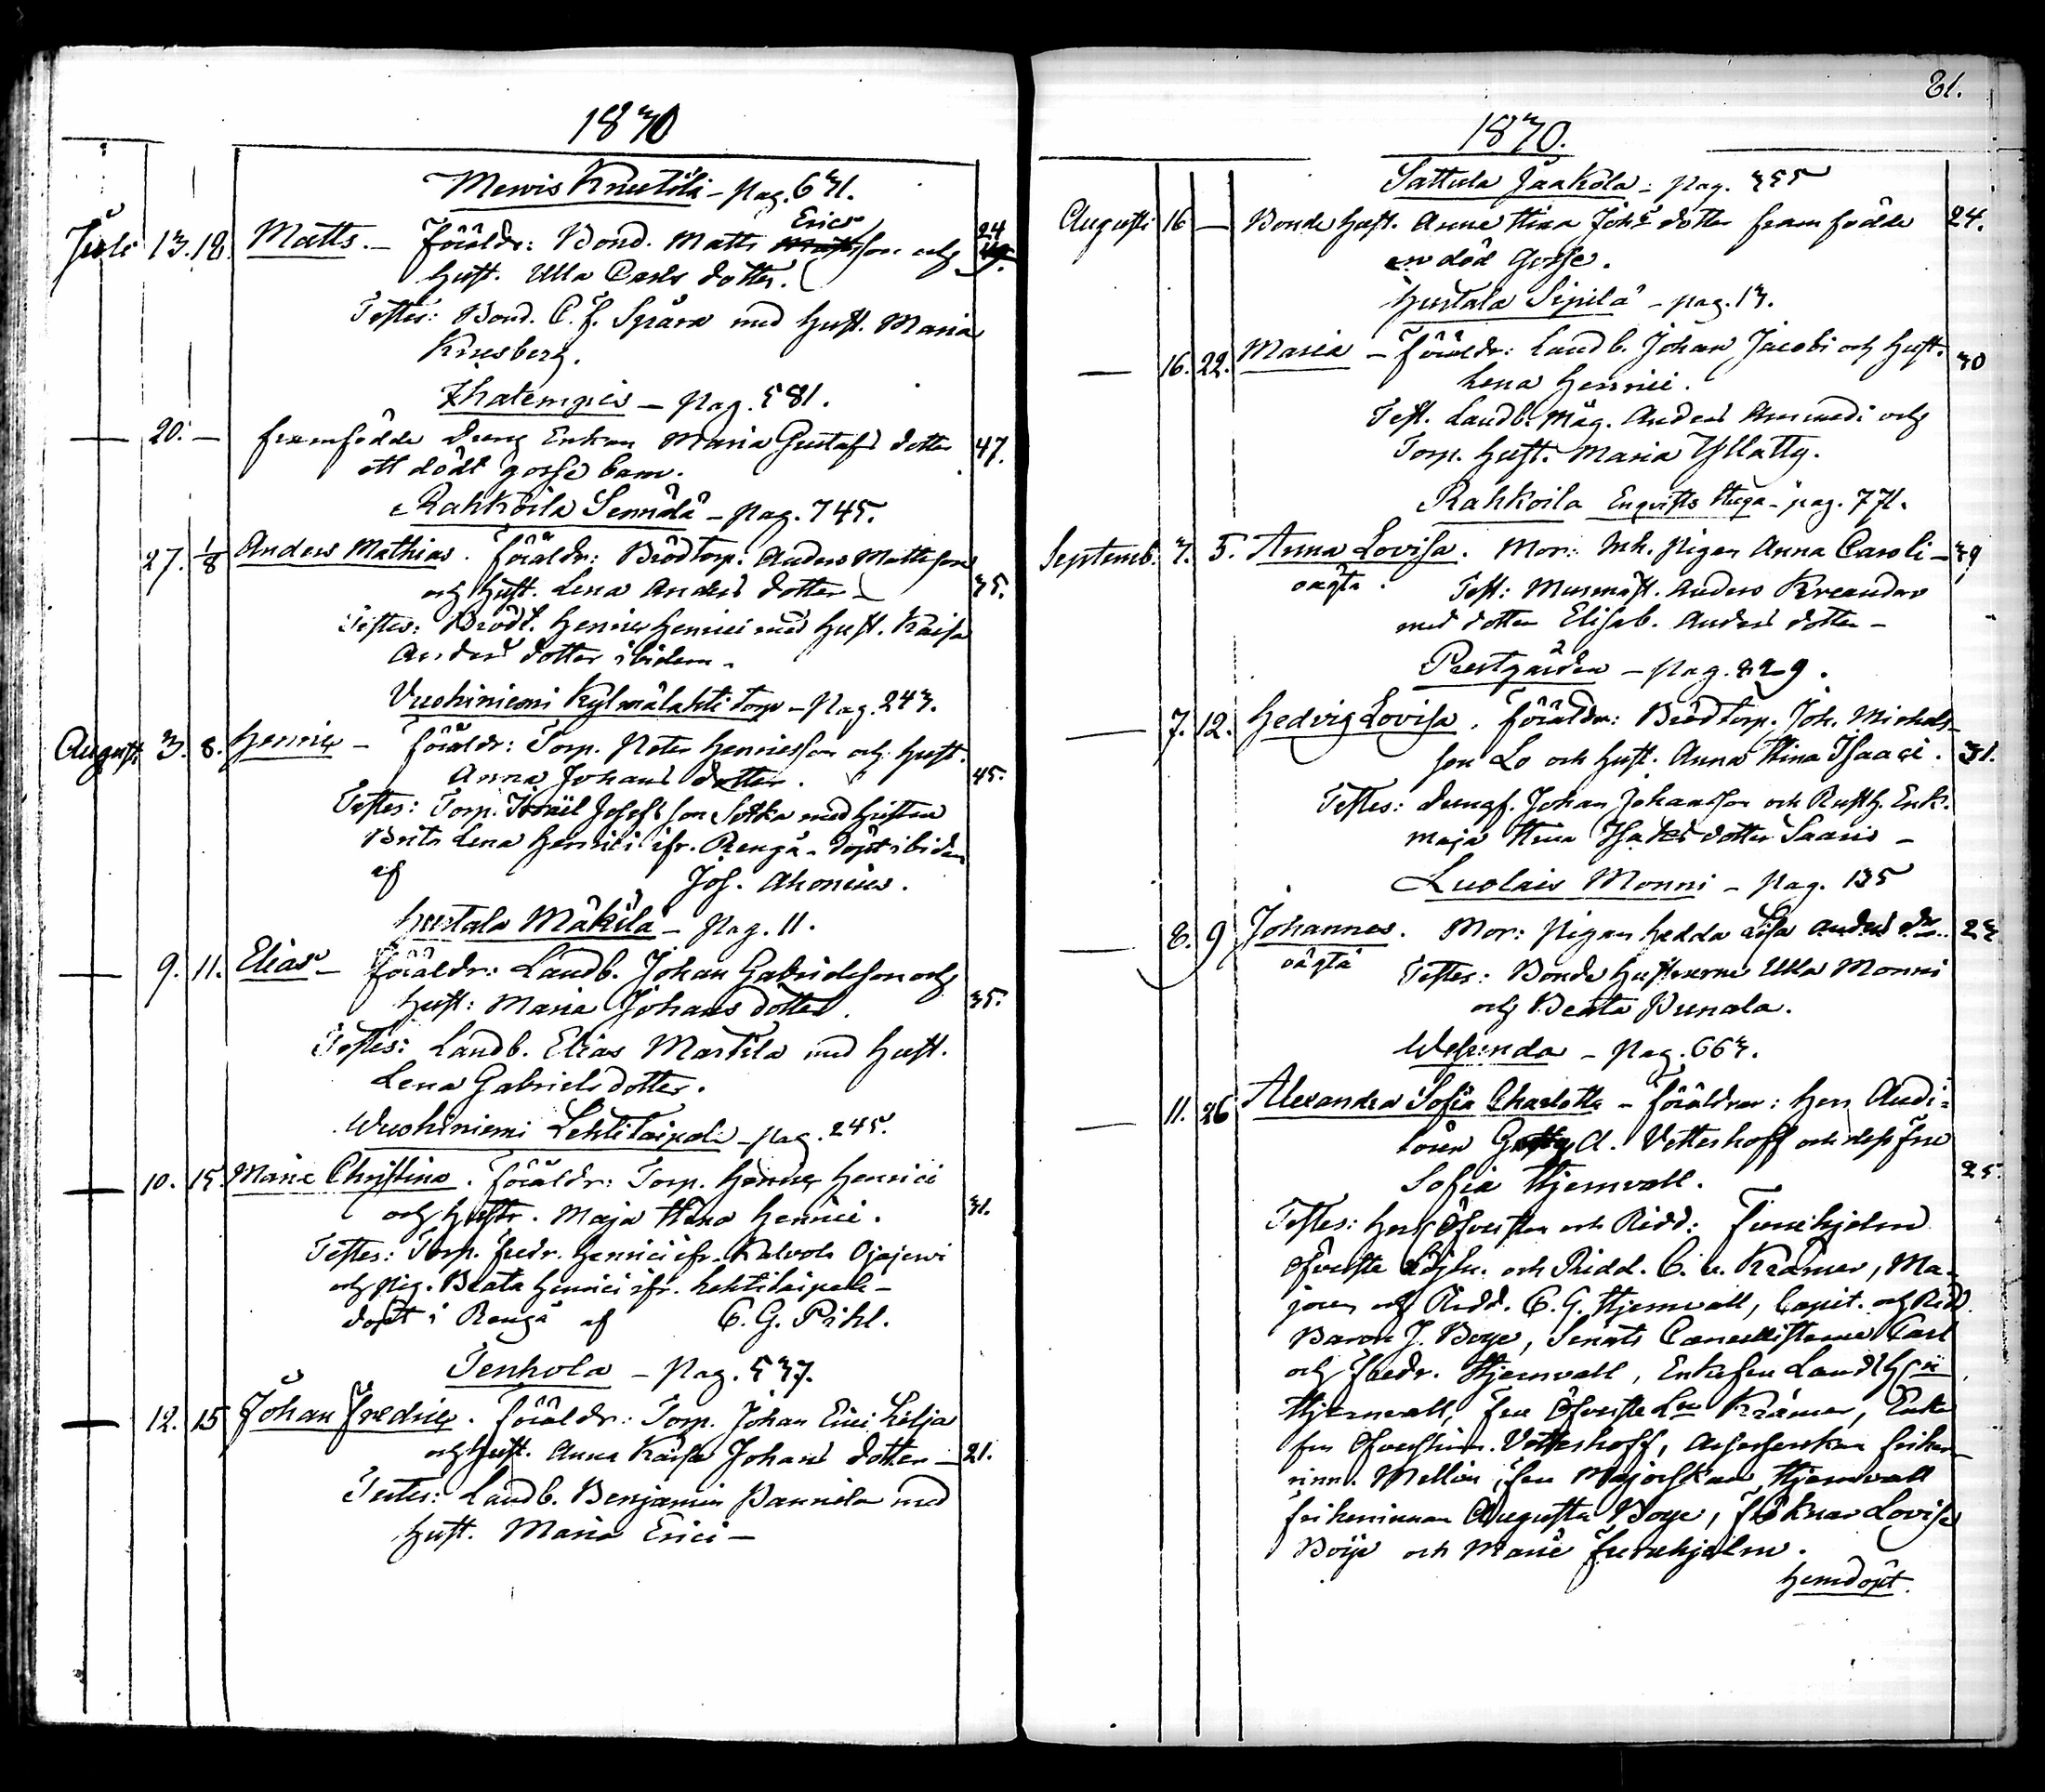 81.
1870
Mewis Knutila – pag. 671.
Juli 13. 18. Matts. – Föräldr: Bond. Matts Ericsson och 24
hust. Ulla Carls dotter.
Testes: Bond. C. f. Spåra med hust. Maria
Knusberg.
– pag. 581.
— 20. — framfödde dreng Enkan Maria Gustafs dotter 47.
ett dödt gosse barn.
Rahkoila Sennälä – pag. 745.
27. 1/8 Anders Mathias. Föräldr: Brödtorp. Anders Mattsson
och hust. Lena Anders dotter – 35.
Testes: Brödt. Henric Henrici med hust. Kaisa
Anders dotter ibidem.
Vuohiniemi Kylmälahti torp – pag. 243.
August. 3. 8. Henric – Föräldr: Torp. Peter Henricsson och hust.
Anna Johans dotter. 45.
Testes: Torp. Israël Josefsson Sotka med hustru
Brita Lena Henrici ifr. Rengå – döpt ibidem
af Jos. Ahonius.
Hurtala Mäkilä – pag. 11.
— 9. 11. Elias – Föräldr: Landb. Johan Gabrielsson och
hust: Maria Johans dotter. 35.
Testes: Landb. Elias Martila med hust.
Lena Gabriels dotter.
Wuohiniemi Lehtitaipale – pag. 245.
— 10. 15. Maria Christina. Föräldr: Torp. Henric Henrici
och hustr. Maja Stina Henrici. 31.
Testes: Torp. Fredr. Henrici ifr. Kalvola Ojajerwi
och pig. Beata Henrici ifr. Lehtitaipale –
döpt i Rengå af C. G. Pihl.
Tenhola – pag. 537.
— 12. 15 Johan Fredric. Föräldr: Torp. Johan Erici Lilja
och hust. Anna Kaisa Johans dotter – 21.
Testes: Landb. Benjamin Pannila med
hust. Maria Erici –
1870.
Sattula Jaakola – pag. 355
Augusti 16 — Bonde hust. Anna Stina Johs dotter framfödde 24.
en död gosse.
Hurtala Sipilä – pag. 13.
— 16. 22. Maria – Föräldr: Landb. Johan Jacobi och hust. 30
Lena Henrici.
Test. Landb. Måg. Anders och
Torp. hust. Maria Yllätty.
Rahkoila Enqvists stuga – pag. 771.
Septemb. 3. 5. Anna Lovisa. Mor: Inh. pigan Anna Caroli – 39
oägta. Test: Murmäst. Anders Kreander
med dotter Elisab. Anders dotter –
Prestgården – pag. 829.
— 7. 12. Hedvig Lovisa. Föräldr: Brödtorp. Joh. Michels-
son Lo och hust. Anna Stina Isaaci. 31.
Testes: drengf. Johan Johansson och Rusth. Enk.
Maja Stina Isaks dotter Saaris –
Luolais Monni – pag. 135
— 8. 9 Johannes. Mor: pigan Hedda Lisa Anders dr. 23
oägta Testes: Bonde hustrurne Ulla Monni
och Beata Punala.
Wesunda – pag. 663.
— 11. 26 Alexandra Sofia Charlotta – Föräldrar: Herr Audi-
tören A. Vetterhoff och dess fru
Sofia Hjernvall. 25.
Testes: Herr Öfversten och Ridd: Furuhjelm
Öfverste Löjtn. och Ridd. C. v. Kræmer, Ma-
joren och Ridd. C. G. Hjernvall, Capit. och Ridd.
Baron J. Boye, Senats Cancellisterne Carl
och Fredr. Hjernvall, Enkefru
Hjernvall, Fru Öfverste Kræmer, Enke
fru Vetterhoff, friher-
rinn. Mellin, fru Majorskan Hjernvall
friherinnan Augusta Boye, fröknar Lovisa
Boije och Marie Furuhjelm.
hemdöpt.